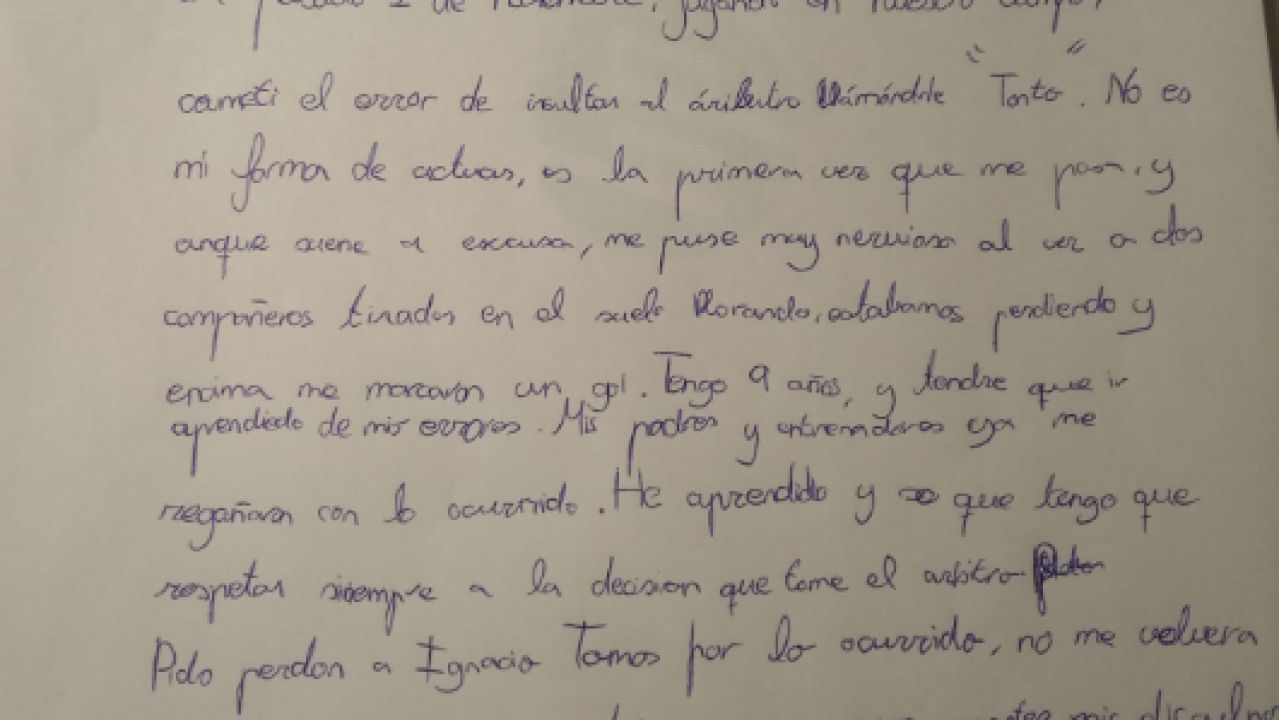 pasado 1 de noviembre, jugando en nuestro campo,
cometi el error de insultar al árbitro llámándole "Tonto". No es
mi forma de actuar, es la primera vez que me pasa, y
aunque suene a escusa, me puse muy nervioso al ver a dos
compañeros tirados en el suelo llorando, estabamos perdiendo y
encima me marcaron un gol. Tengo 9 años, y tendre que ir
aprendiedo de mis errores. Mis padres y entrenadores ya me
regañaron con lo ocurrido. He aprendido y se que tengo que
respetar siempre a la decision que tome el arbitro
Pido perdon a Ignacio Tomos por lo ocurrido, no me volvera
mis disculpas